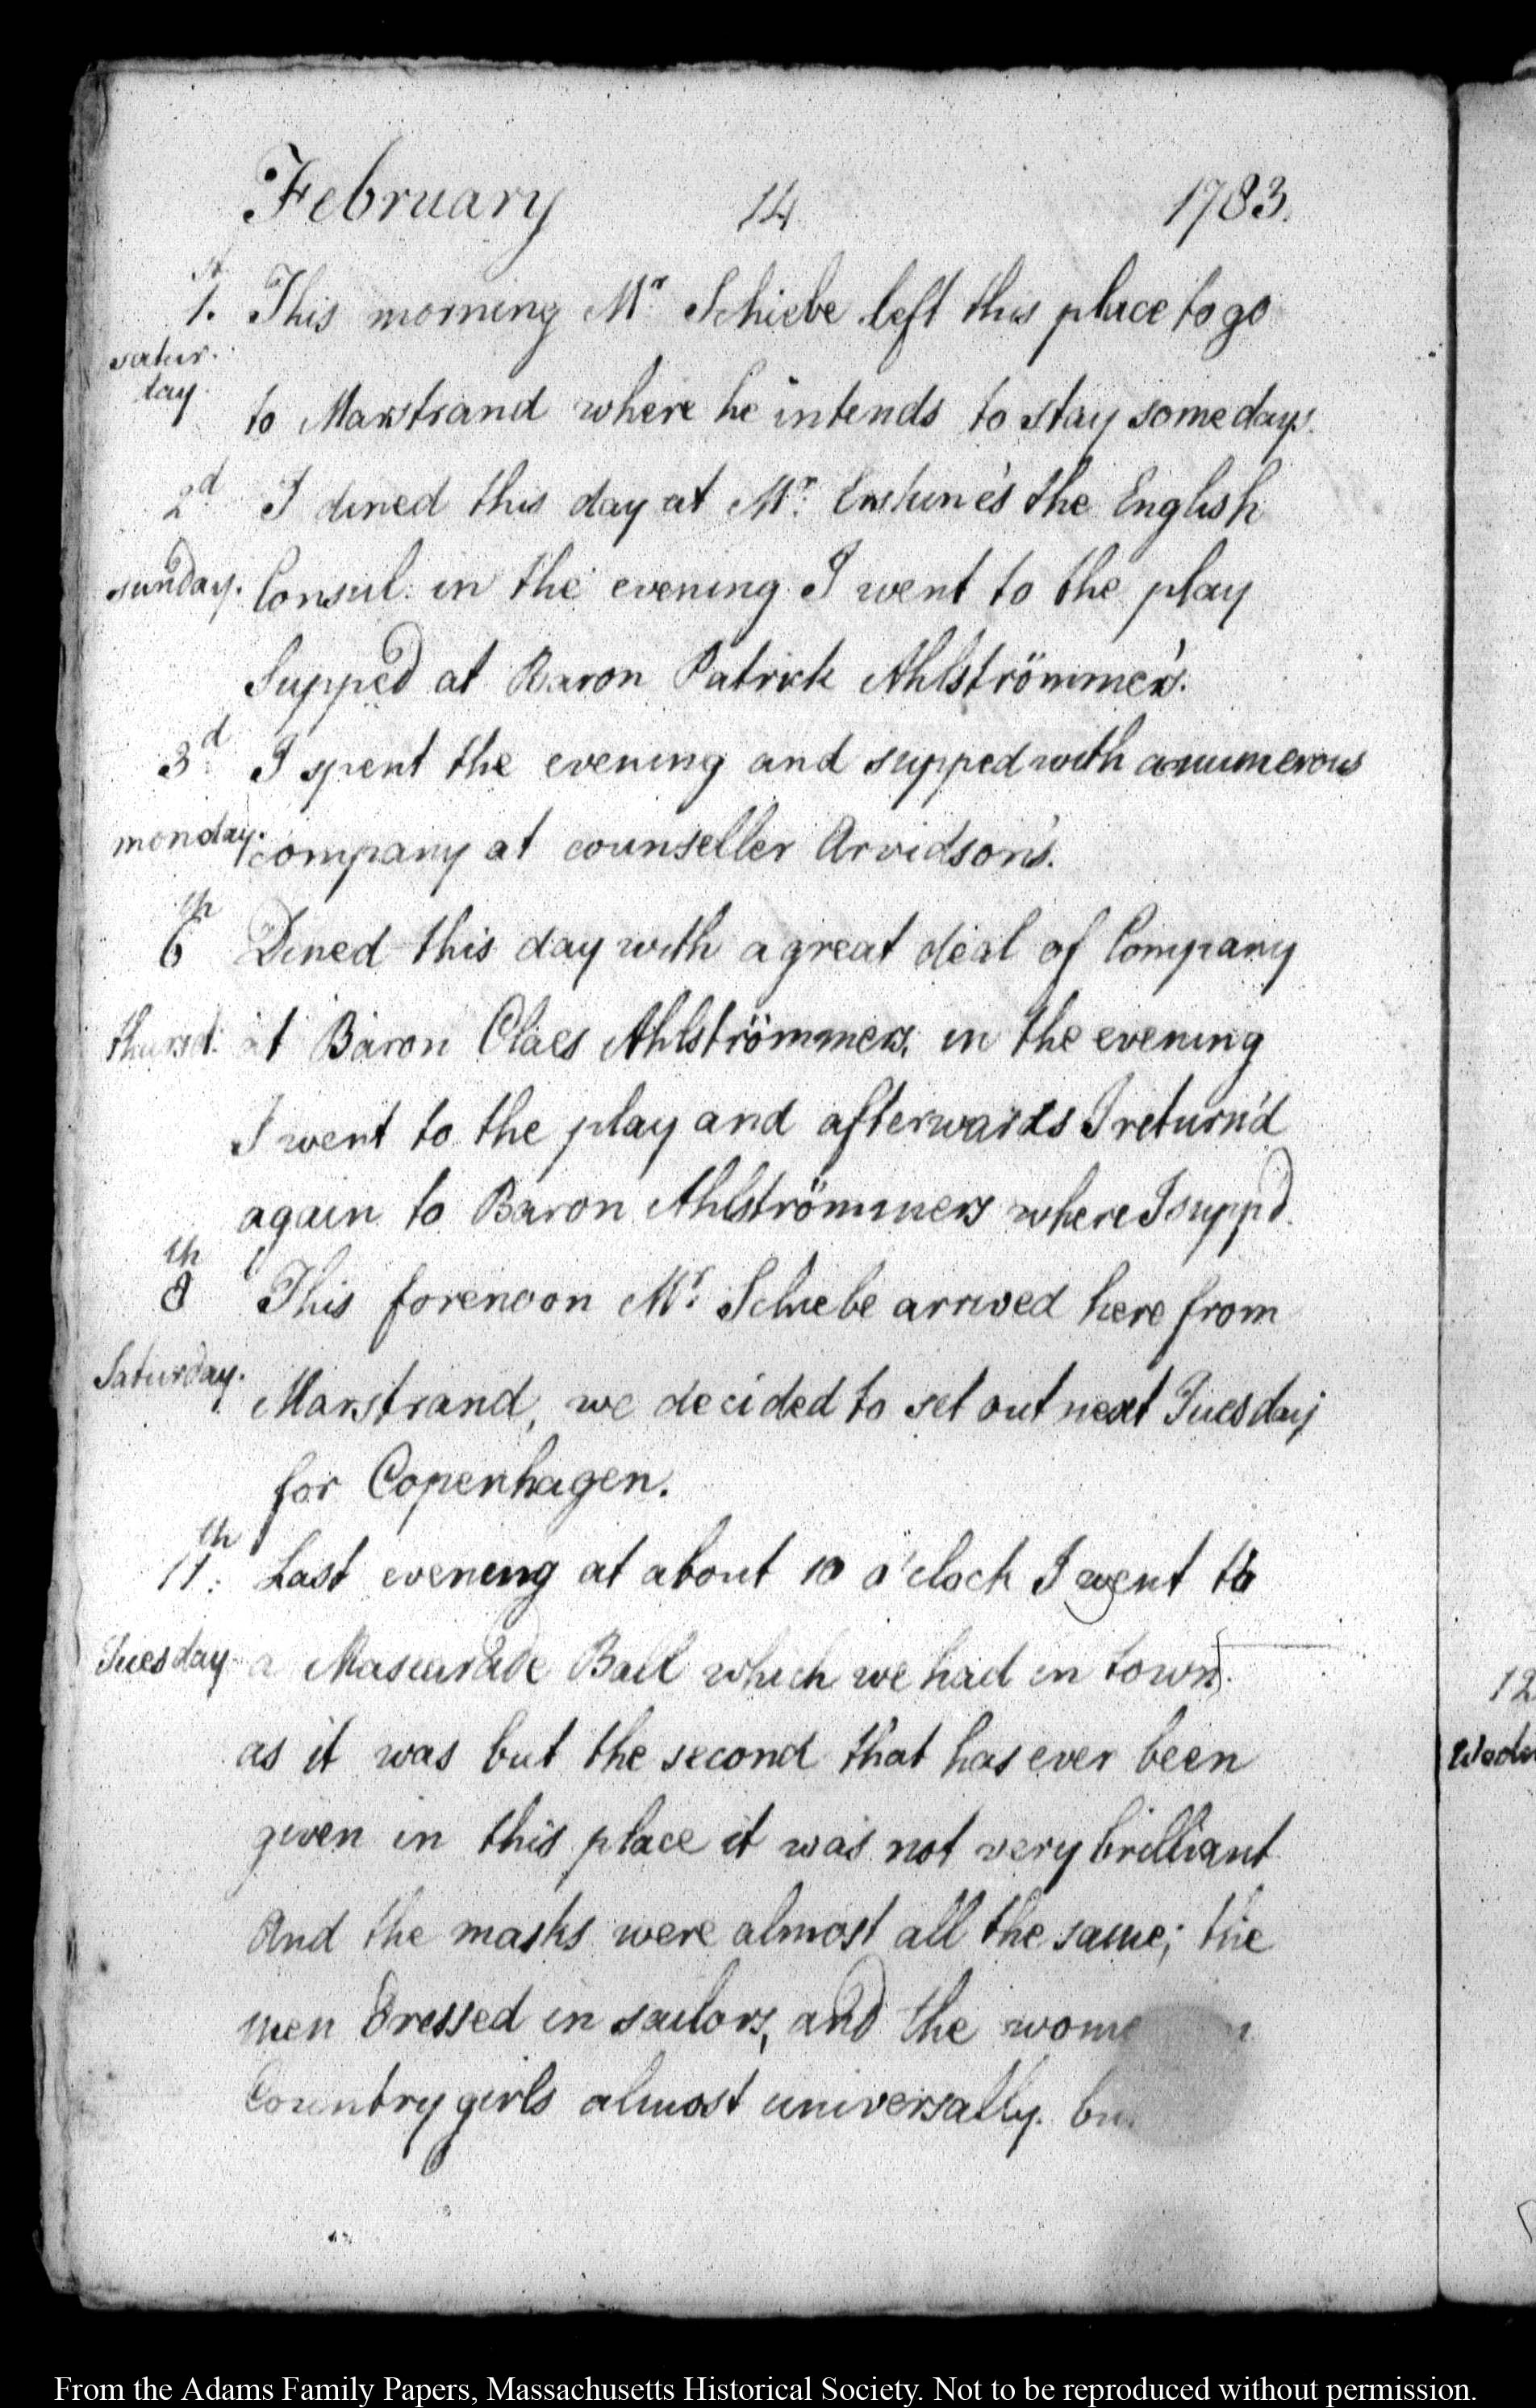 February 14 1783.
1.st This morning Mr. Schiebe left this place to go
satur.
day.
to Marstrand where he intends to stay some days.
2d I dined this day at Mr. Erskine's the English
sunday. Consul. in the evening I went to the play
Supped at Baron Patrick Ahlströmmer's.
3d I spent the evening and supped with a numerous
monday. company at counseller Arvidson's.
6th Dined this day with a great deal of Company
thursd. at Baron Claes Ahlströmmers. in the evening
I went to the play and afterwards I return'd
again to Baron Ahlströmmers where I supp'd.
8th This forenoon Mr. Schiebe arrived here from
Saturday. Marstrand, we decided to set out next Tuesday
for Copenhagen.
11th: Last evening at about 10 o'clock I went to
Tuesday a Mascarade Ball which we had in town.
as it was but the second that has ever been
given in this place it was not very brilliant
And the masks were almost all the same; the
men dressed in sailors, and the
Country girls almost universally.
12
From the Adams Family Papers, Massachusetts Historical Society. Not to be reproduced without permission.